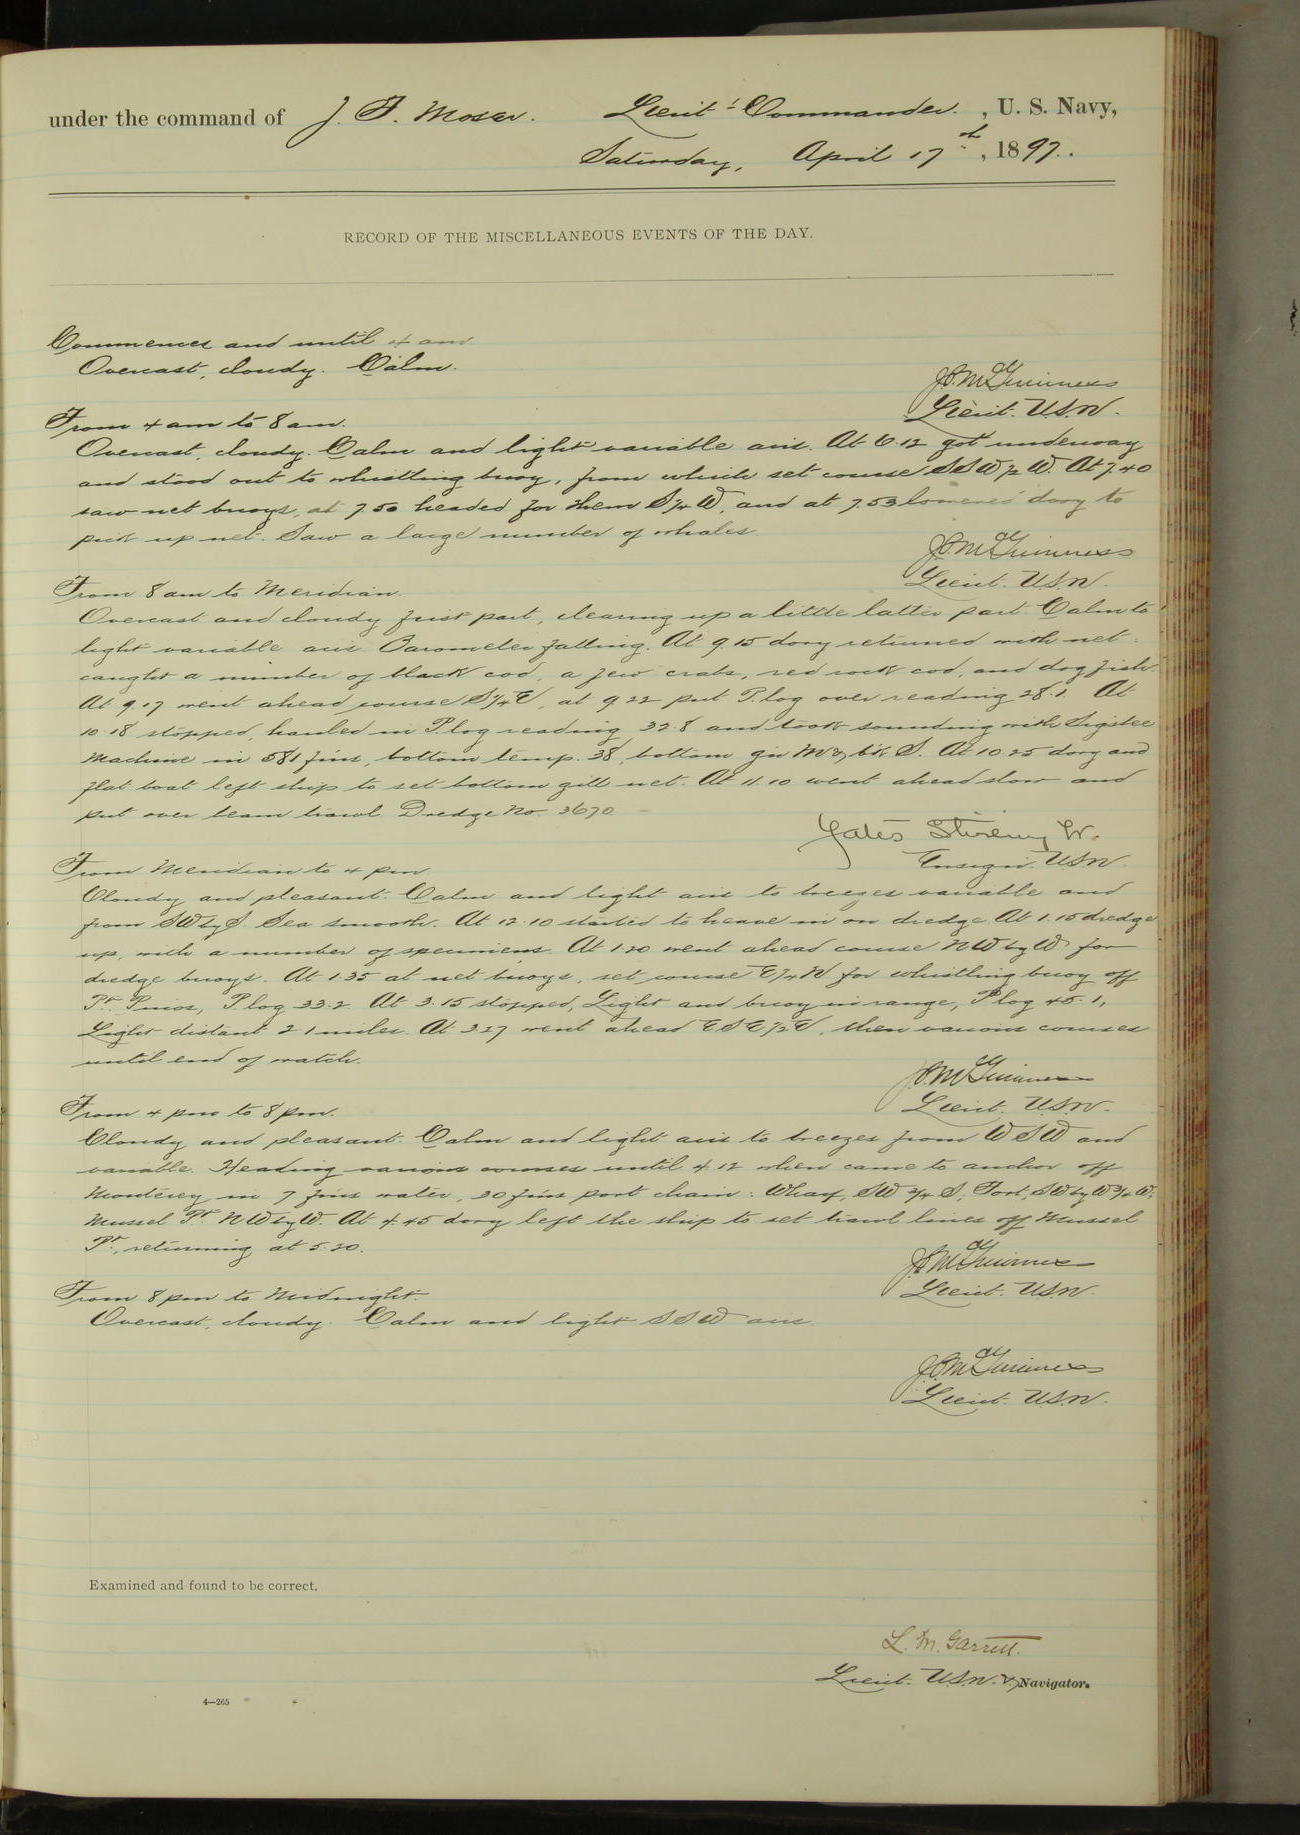 under the command of J. F. Moser. Lieut. Commander. , U. S. Navy,
Saturday, April 17th, 1897.
RECORD OF THE MISCELLANEOUS EVENTS OF THE DAY.
Commences and until 4 am
Overcast, cloudy. Calm.
J.P. McGuinness
Lieut. U.S.N.
From 4 am to 8 am.
Overcast, cloudy. Calm and light variable airs. At 6.12 got underway
and stood out to whistling buoy, from which set course SSW½W. At 7.40
saw net buoys, at 7.50 headed for them S¼W, and at 7.53 lowered dory to
pick up net. Saw a large number of whales.
J.P. McGuinness
Lieut. U.S.N.
From 8 am to Meridian.
Overcast and cloudy first part, clearing up a little latter part. Calm to
light variable airs. Barometer falling. At 9.15 dory returned with net:
caught a number of black cod, a few crabs, red rock cod, and dog fish.
At 9.17 went ahead course S¼E, at 9.22 put P. log over reading 28.1. At
10.18 stopped, hauled in P. log reading 32.8 and took sounding with Sigsbee
Machine in 581 fms, bottom temp. 38, bottom gn M & bk S. At 10.25 dory and
flat boat left ship to set bottom gill net. At 11.10 went ahead slow and
put over beam trawl. Dredge No. 3670.
Yates Stirling Jr.
Ensign. U.S.N.
From Meridian to 4 pm
Cloudy and pleasant. Calm and light airs to breezes variable and
from SW by S. Sea smooth. At 12.10 started to heave in on dredge. At 1.15 dredge
up, with a number of specimens. At 1.20 went ahead course NW by W for
dredge buoys. At 1.35 at net buoys, set course E¼N for whistling buoy off
Pt. Pinos, P. log 33.2. At 3.15 stopped, Light and buoy in range, P. log 45.1,
Light distant 2.1 miles. At 3.27 went ahead ESE½E, then various courses
until end of watch.
J.P. McGuinness
Lieut. U.S.N.
From 4 pm to 8 pm.
Cloudy and pleasant. Calm and light airs to breezes from WSW and
variable. Heading various courses until 4.12 when came to anchor off
Monterey in 7 fms water, 30 fms port chain: Wharf, SW ¾ S, Fort, SW by W ¾ W,
Mussel Pt. NW by W. At 4.45 dory left the ship to set trawl lines off Mussel
Pt., returning at 5.30.
J.P. McGuinness
Lieut. U.S.N.
From 8 pm to Midnight.
Overcast, cloudy. Calm and light SSW airs.
J.P. McGuinness
Lieut. U.S.N.
Examined and found to be correct.
L. M. Garrett.
Lieut. U.S.N. & Navigator.
4—265